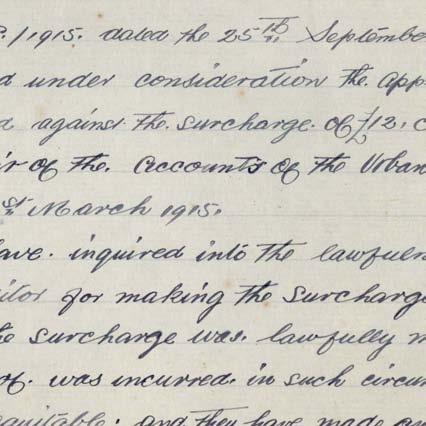 P./1915. dated the 25th Septembe
d under consideration the App
d against the surcharge of £12,
ir of the Accounts of the Urban
st March 1915.
have inquired into the lawfuln
itor for making the Surcharge
he surcharge was lawfully m
of was incurred in such circum
equitable, and they have made an